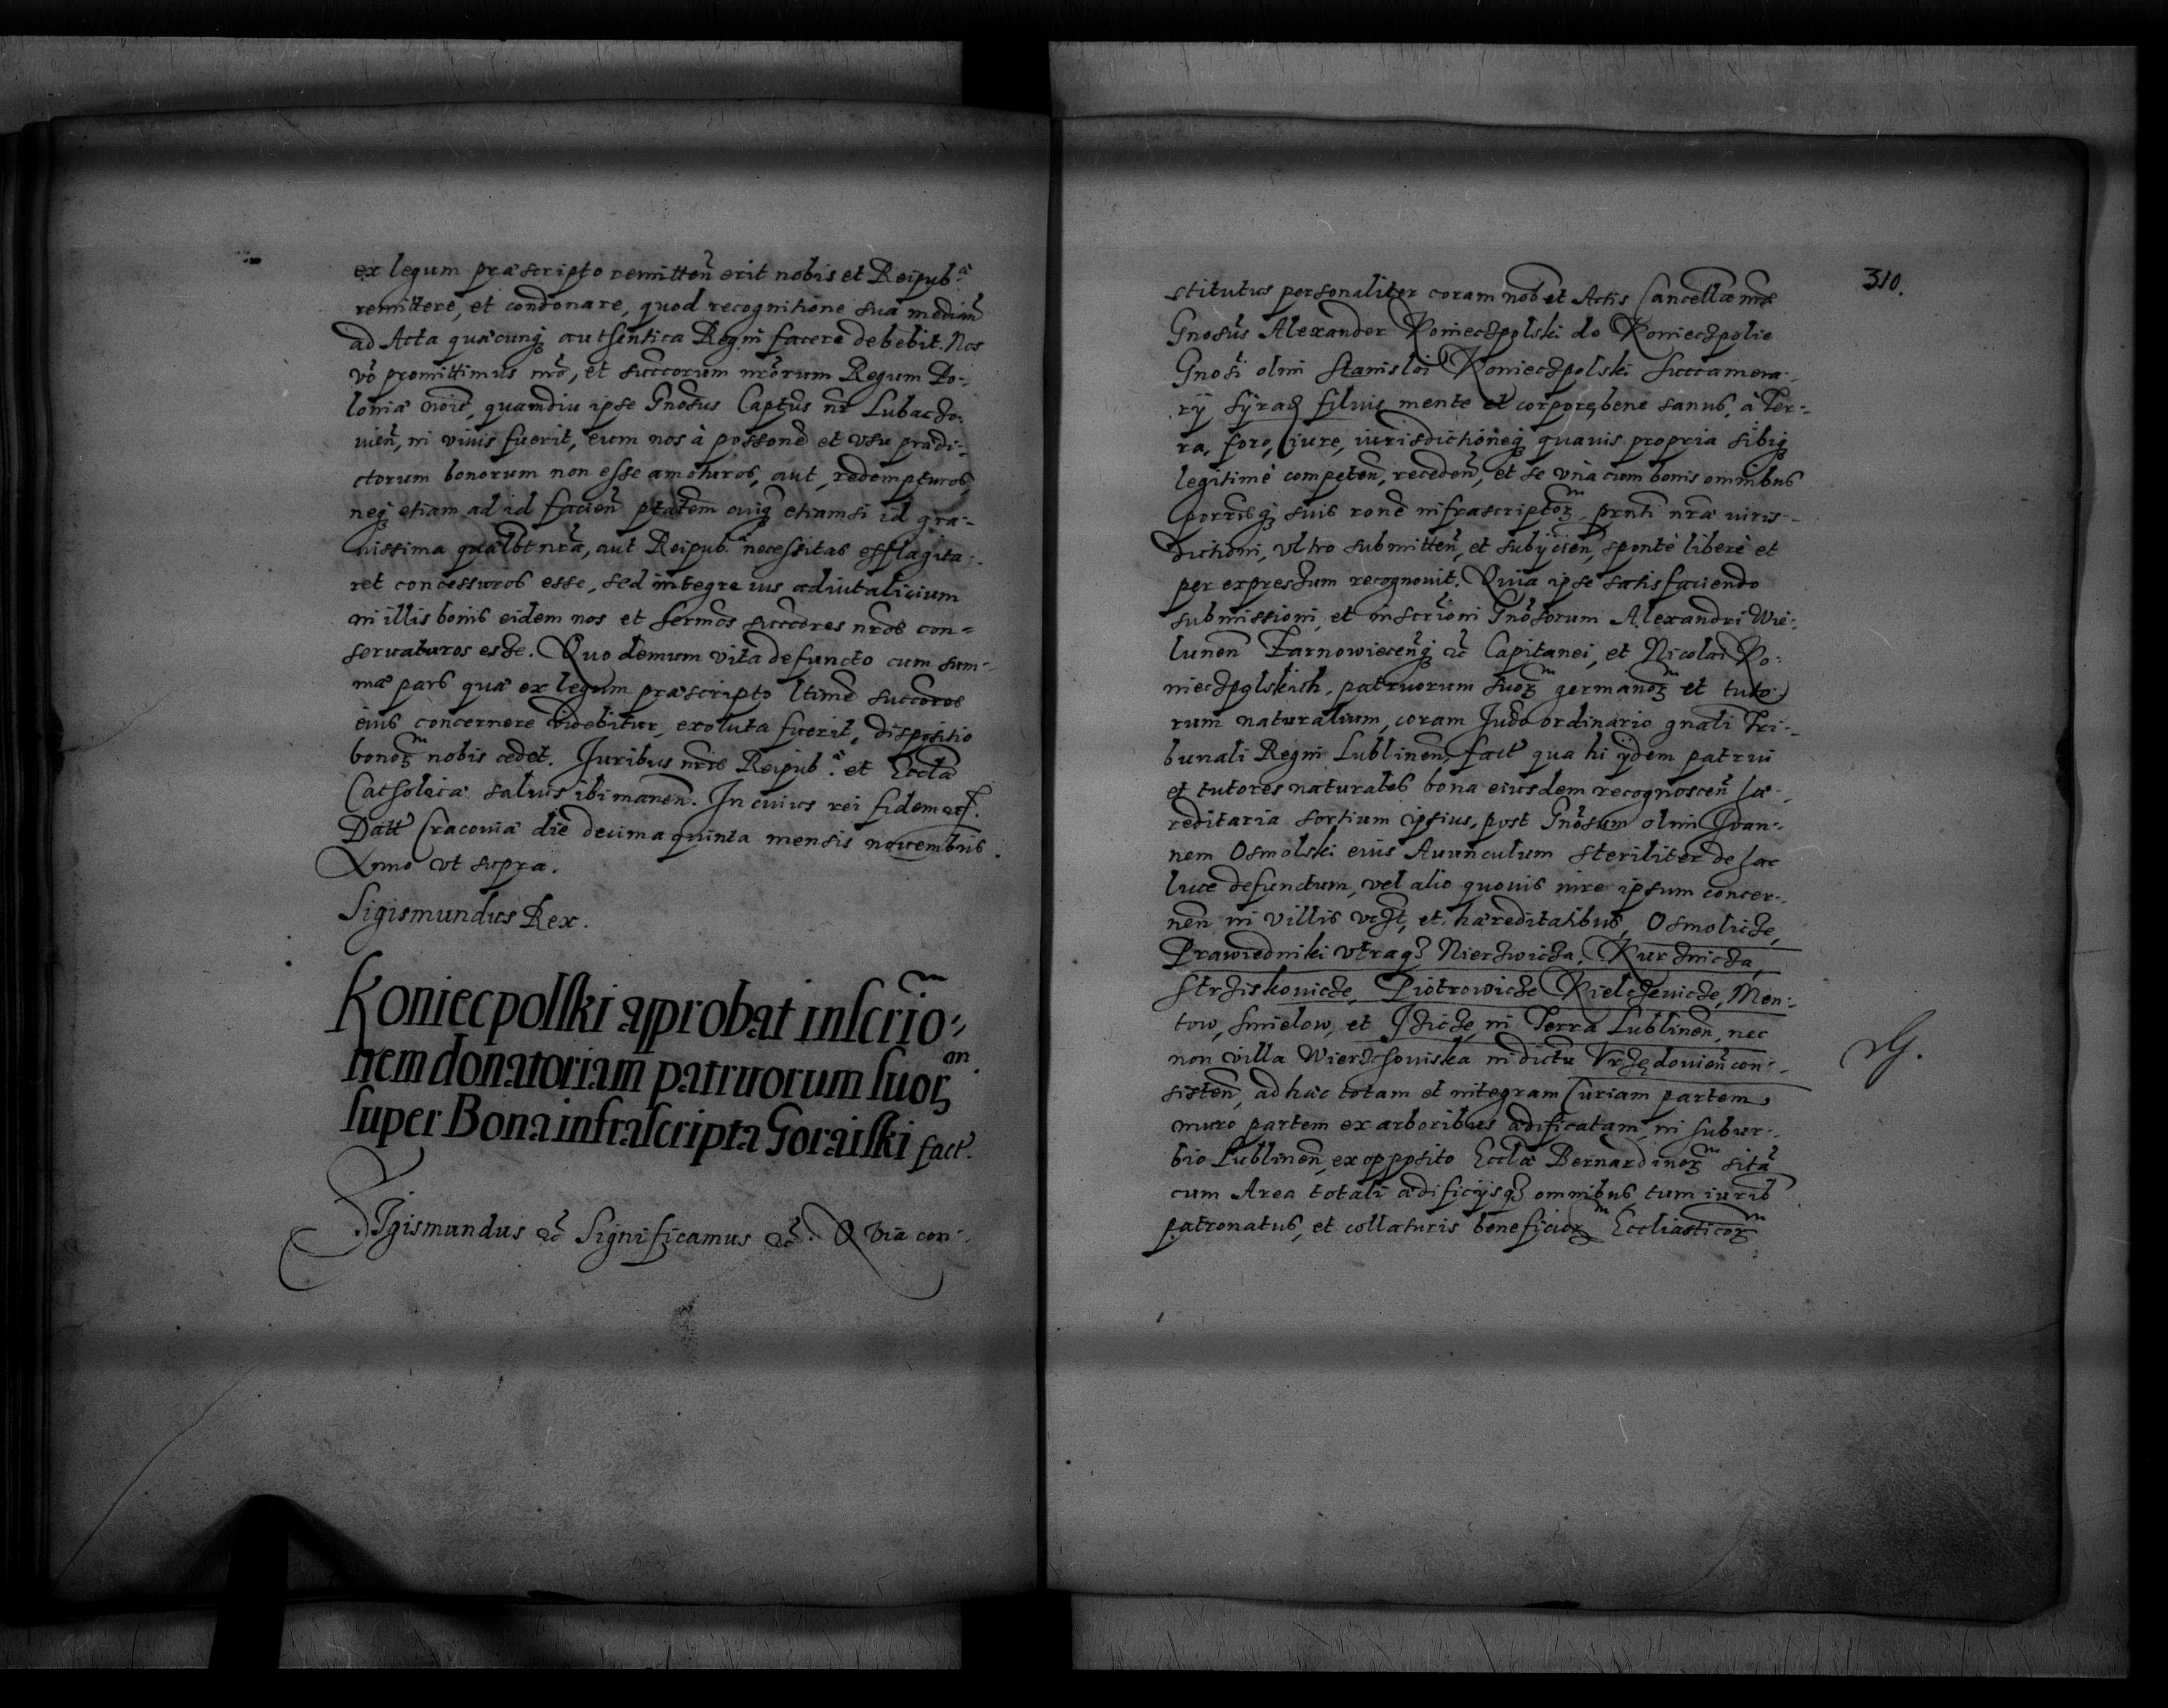 ex legum præscripto remitten̄ erit nobis et Reipub.æ
remittere, et condonare, quod recognitione sua median̄
ad Acta quæcunq authentica Regni facere debebit. Nos
vō promittimus nrō, et succcorum nrōrum Regum Po-
loniæ noīe, quamdiu ipse Gnosus Capt̄us nr̄ Lubaczo-
uien̄, in viuis fuerit, eum nos à possone et vsu prædi-
ctorum bonorum non esse amoturos, aut redempturos,
neq etiam ad id facien̄ ptatem cuiq etiamsi id gra-
uissima quælbt nrā, aut Reipub.æ necessitas efflagita-
ret concessuros esse, sed integre ius aduitalicium
in illis bonis eidem nos et sermos succcores nrōs con-
seruaturos esse. Quo demum vita defuncto cum sum-
mæ pars quæ ex legum præscripto ltime succores
eius concernere videbitur, exoluta fuerit, dispositio
bonoꝝ nobis cedet. Juribus nrīs Reipub.æ et Ecclæ
Catholicæ saluis ibi manen̄. In cuius rei fidem etc.
Datt Cracouiæ die decima quinta mensis nouembris.
Anno vt supra.
Sigismundus Rex.
Koniecpolski approbat inscrio-
nem donatoriam patruorum suoꝝ
super Bona infrascripta Goraiski fact.
Sigismundus etc Significamus etc. Quia con-
310.
stitutus personaliter coram nob et Actis Cancellæ nræ
Gnosus Alexander Koniecpolski de Koniecpolie
Gnosi olim Stanislai Koniecpolski Succamera-
rij Syrad filius mente et corpore bene sanus, à Ter-
ra, foro, iure, iurisdictioneq quauis propria sibiq
legitimè competen̄, receden̄, et se vnà cum bonis omnibus
sortisq suis rone infrascriptoꝝ prnti nræ iuris-
dictioni, vltro submitten̄, et subijcien̄, sponte liberè et
per expressum recognouit. Quia ipse satisfaciendo
submissioni, et inscrioni Gnosorum Alexandri Wie-
lunen̄ Tarnowiecenq etc Capitanei, et Nicolai Ko-
niecpolskich, patruorum suoꝝ germanoꝝ et tuto-
rum naturalium, coram Judo ordinario gnali Tri-
bunali Regni Lublinen̄, fact qua hi ijdem patrui
et tutores naturales bona eiusdem recognoscen̄ hæ-
reditaria sortium ipsius, post Gnosum olim Joan-
nem Osmolski eius Auunculum steriliter de hac
luce defunctum, vel alio quouis iure ipsum concer-
nen̄ in villis vczt, et hæreditatibus, Osmolicze,
Prawiedniki vtraq Nierzwicza, Kurznicza,
Strziskowicze, Piotrowicze Kielczewicze, Men-
tow, Smielow, et Jzicze, in Terra Lublinen̄, nec
non villa Wierzchowiska in dictu Vrzędouien̄ con-
sisten̄, ad hæc totam et integram Curiam partem
muro partem ex arboribus ædificatam, in subur-
bio Lublinen̄, ex opposito Ecclæ Bernardinoꝝ sitā
cum Area totali ædificijsq omnibus tum iurib
patronatus, et collaturis beneficioꝝ Eccliasticoꝝ